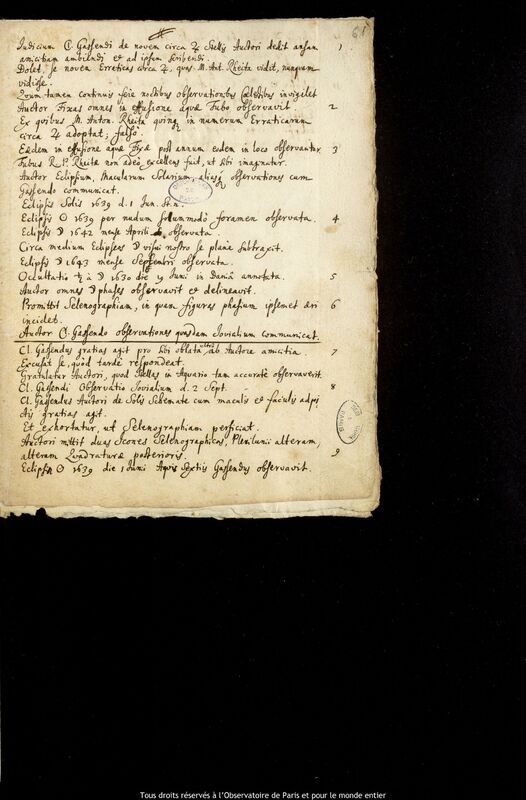 61
Judicium Cl. Gassendi de novem circa ♃ Stellis Auctori dedit ansam 1
amicitiam ambiendi et ad ipsum scribendi.
Dolet, se novem Erraticas circa ♃, quas M. Ant. Rheita vidit, nunquam
vidisse.
Quum tamen continuis fere noctibus observationibus Cælestibus invigilet
Auctor Fixas omnes in effusione aquæ Tubo observavit. 2
Ex quibus M. Anton. Rheita quinq in numerum Erraticarum
circa ♃ adoptat; falso.
Eædem in effusione aquæ Fixæ post annum eodem in loco observantur 3
Tubus R. P. Rheitæ non adeo excellens fuit, ut sibi imaginatur.
Auctor Eclipsium, Macularum Solarium, aliasq observationes cum
Gassendo communicat.
Eclipsis Solis 1639 d. 1 Jun. St. n.
Eclipsis ☉ 1639 per nudum solummodò foramen observata. 4
Eclipsis ☽ 1642 mense Aprili observata.
Circa medium Eclipseos ☽ visui nostro se plane subtraxit.
Eclipsis ☽ 1643 mense Septembri observata.
Occultatio ♄ à ☽ 1630 die 19 Juni in Daniâ annotata. 5
Auctor omnes ☽ phases observavit et delineavit.
Promittit Selenographiam, in quam figuras phasium ipsemet æri 6
incidet.
Auctor Cl. Gassendo observationes quasdam Jovialium communicat.
Cl. Gassendus gratias agit pro sibi oblata ultrò ab Auctore amicitia. 7
Excusat se, quod tardè respondeat.
Gratulatur Auctori, quod Stellas in Aquario tam accurate observaverit.
Cl. Gassendi Observatio Jovialium d. 2 Sept. 8
Cl. Gassendus Auctori de Solis Schemate cum maculis et faculis adpi
ctis gratias agit.
Et exhortatur, ut Selenographiam perficiat.
Auctori mittit duas Icones Selenographicas, Plenilunii alteram,
alteram Quadraturæ posterioris. 9
Eclipsin ☉ 1639 die 1 Junii Aquis Sextiis Gassendus observavit.
Tous droits réservés à l'Observatoire de Paris et pour le monde entier